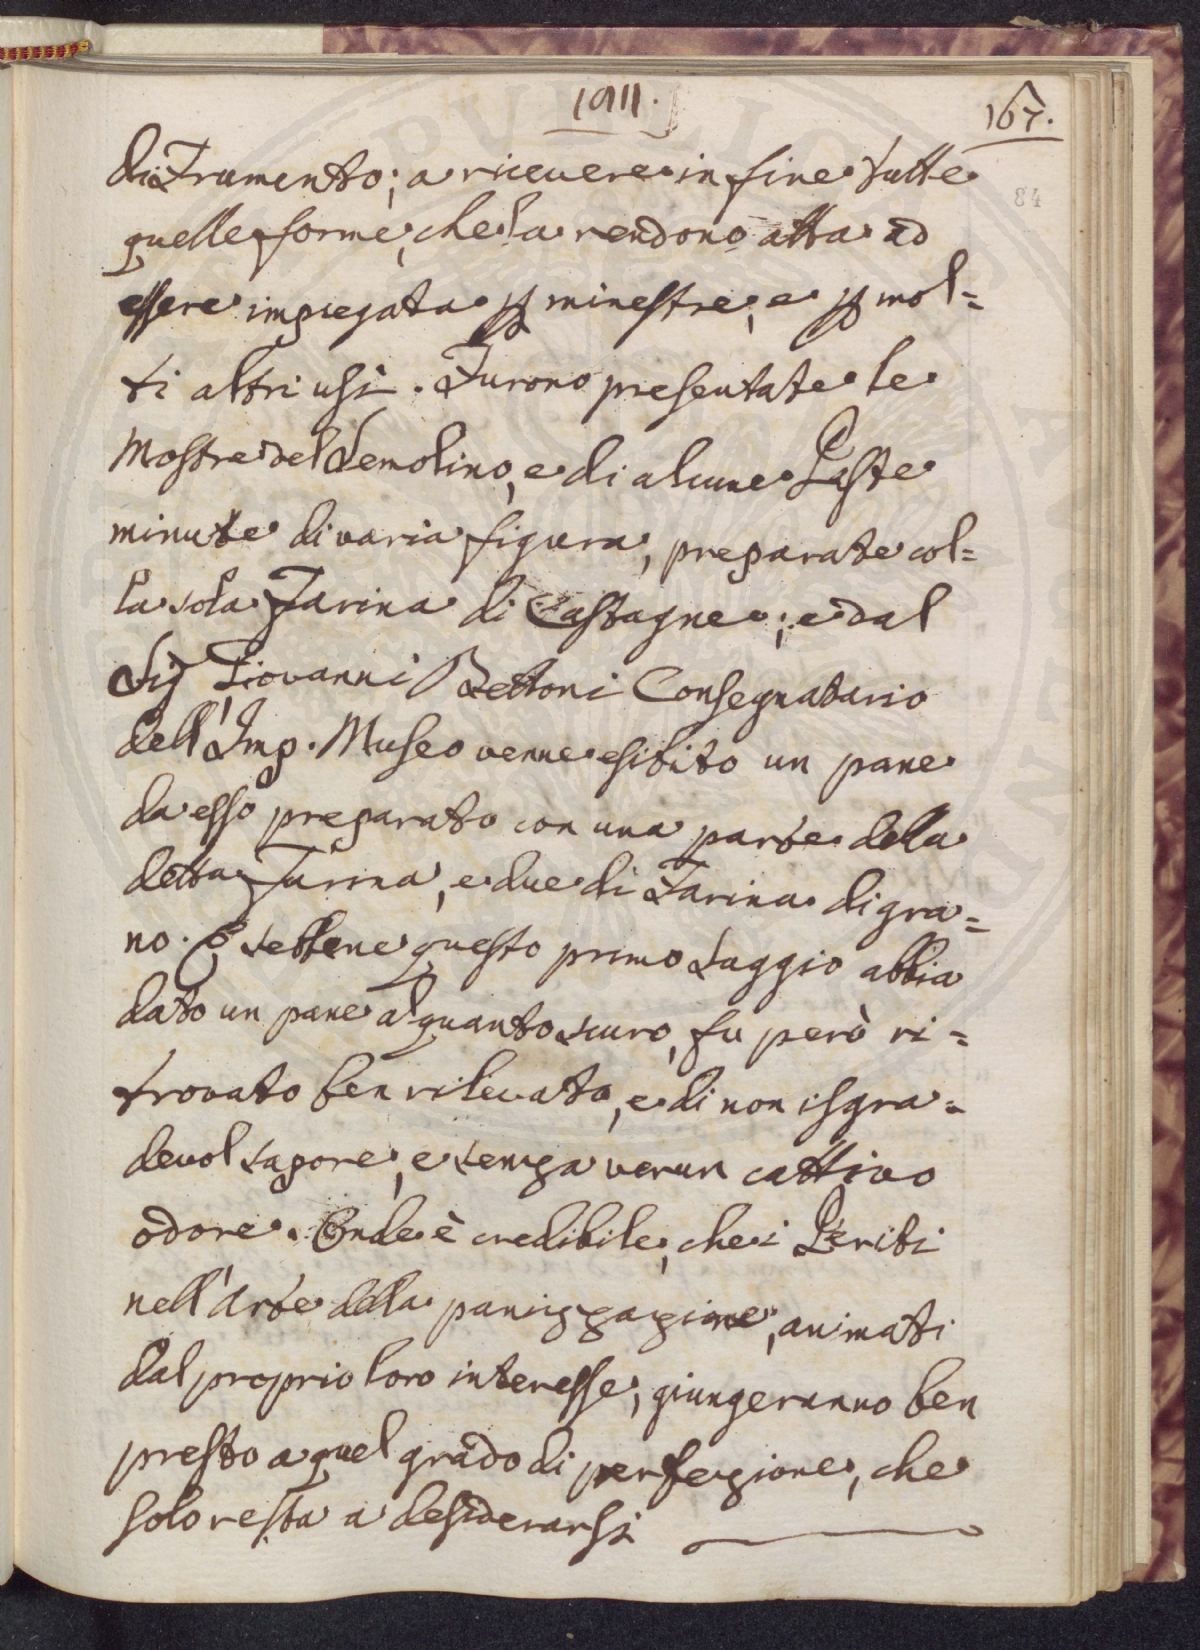 1911.
167.
84
di Frumento; a ricevere in fine tutte
quelle forme, che la rendono atta ad
essere impiegata p minestre, e p mol=
ti altri usi. Furono presentate le
Mostre del Semolino, e di alcune Paste
minute di varia figura, preparate col=
la sola Farina di Castagne; e dal
Sig Giovanni Bettoni Consegnatario
dell'Imp. Museo venne esibito un pane
da esso preparato con una parte della
detta Farina, e due di Farina di gra=
no. E sebbene questo primo Saggio abbia
dato un pane alquanto scuro, fu però ri=
trovato ben rilevato, e di non isgra=
devol sapore, e senza verun cattivo
odore. Onde è credibile, che i Periti
nell'Arte della panizzazione, animati
dal proprio loro interesse, giungeranno ben
presto a quel grado di perfezione, che
solo resta a desiderarsi